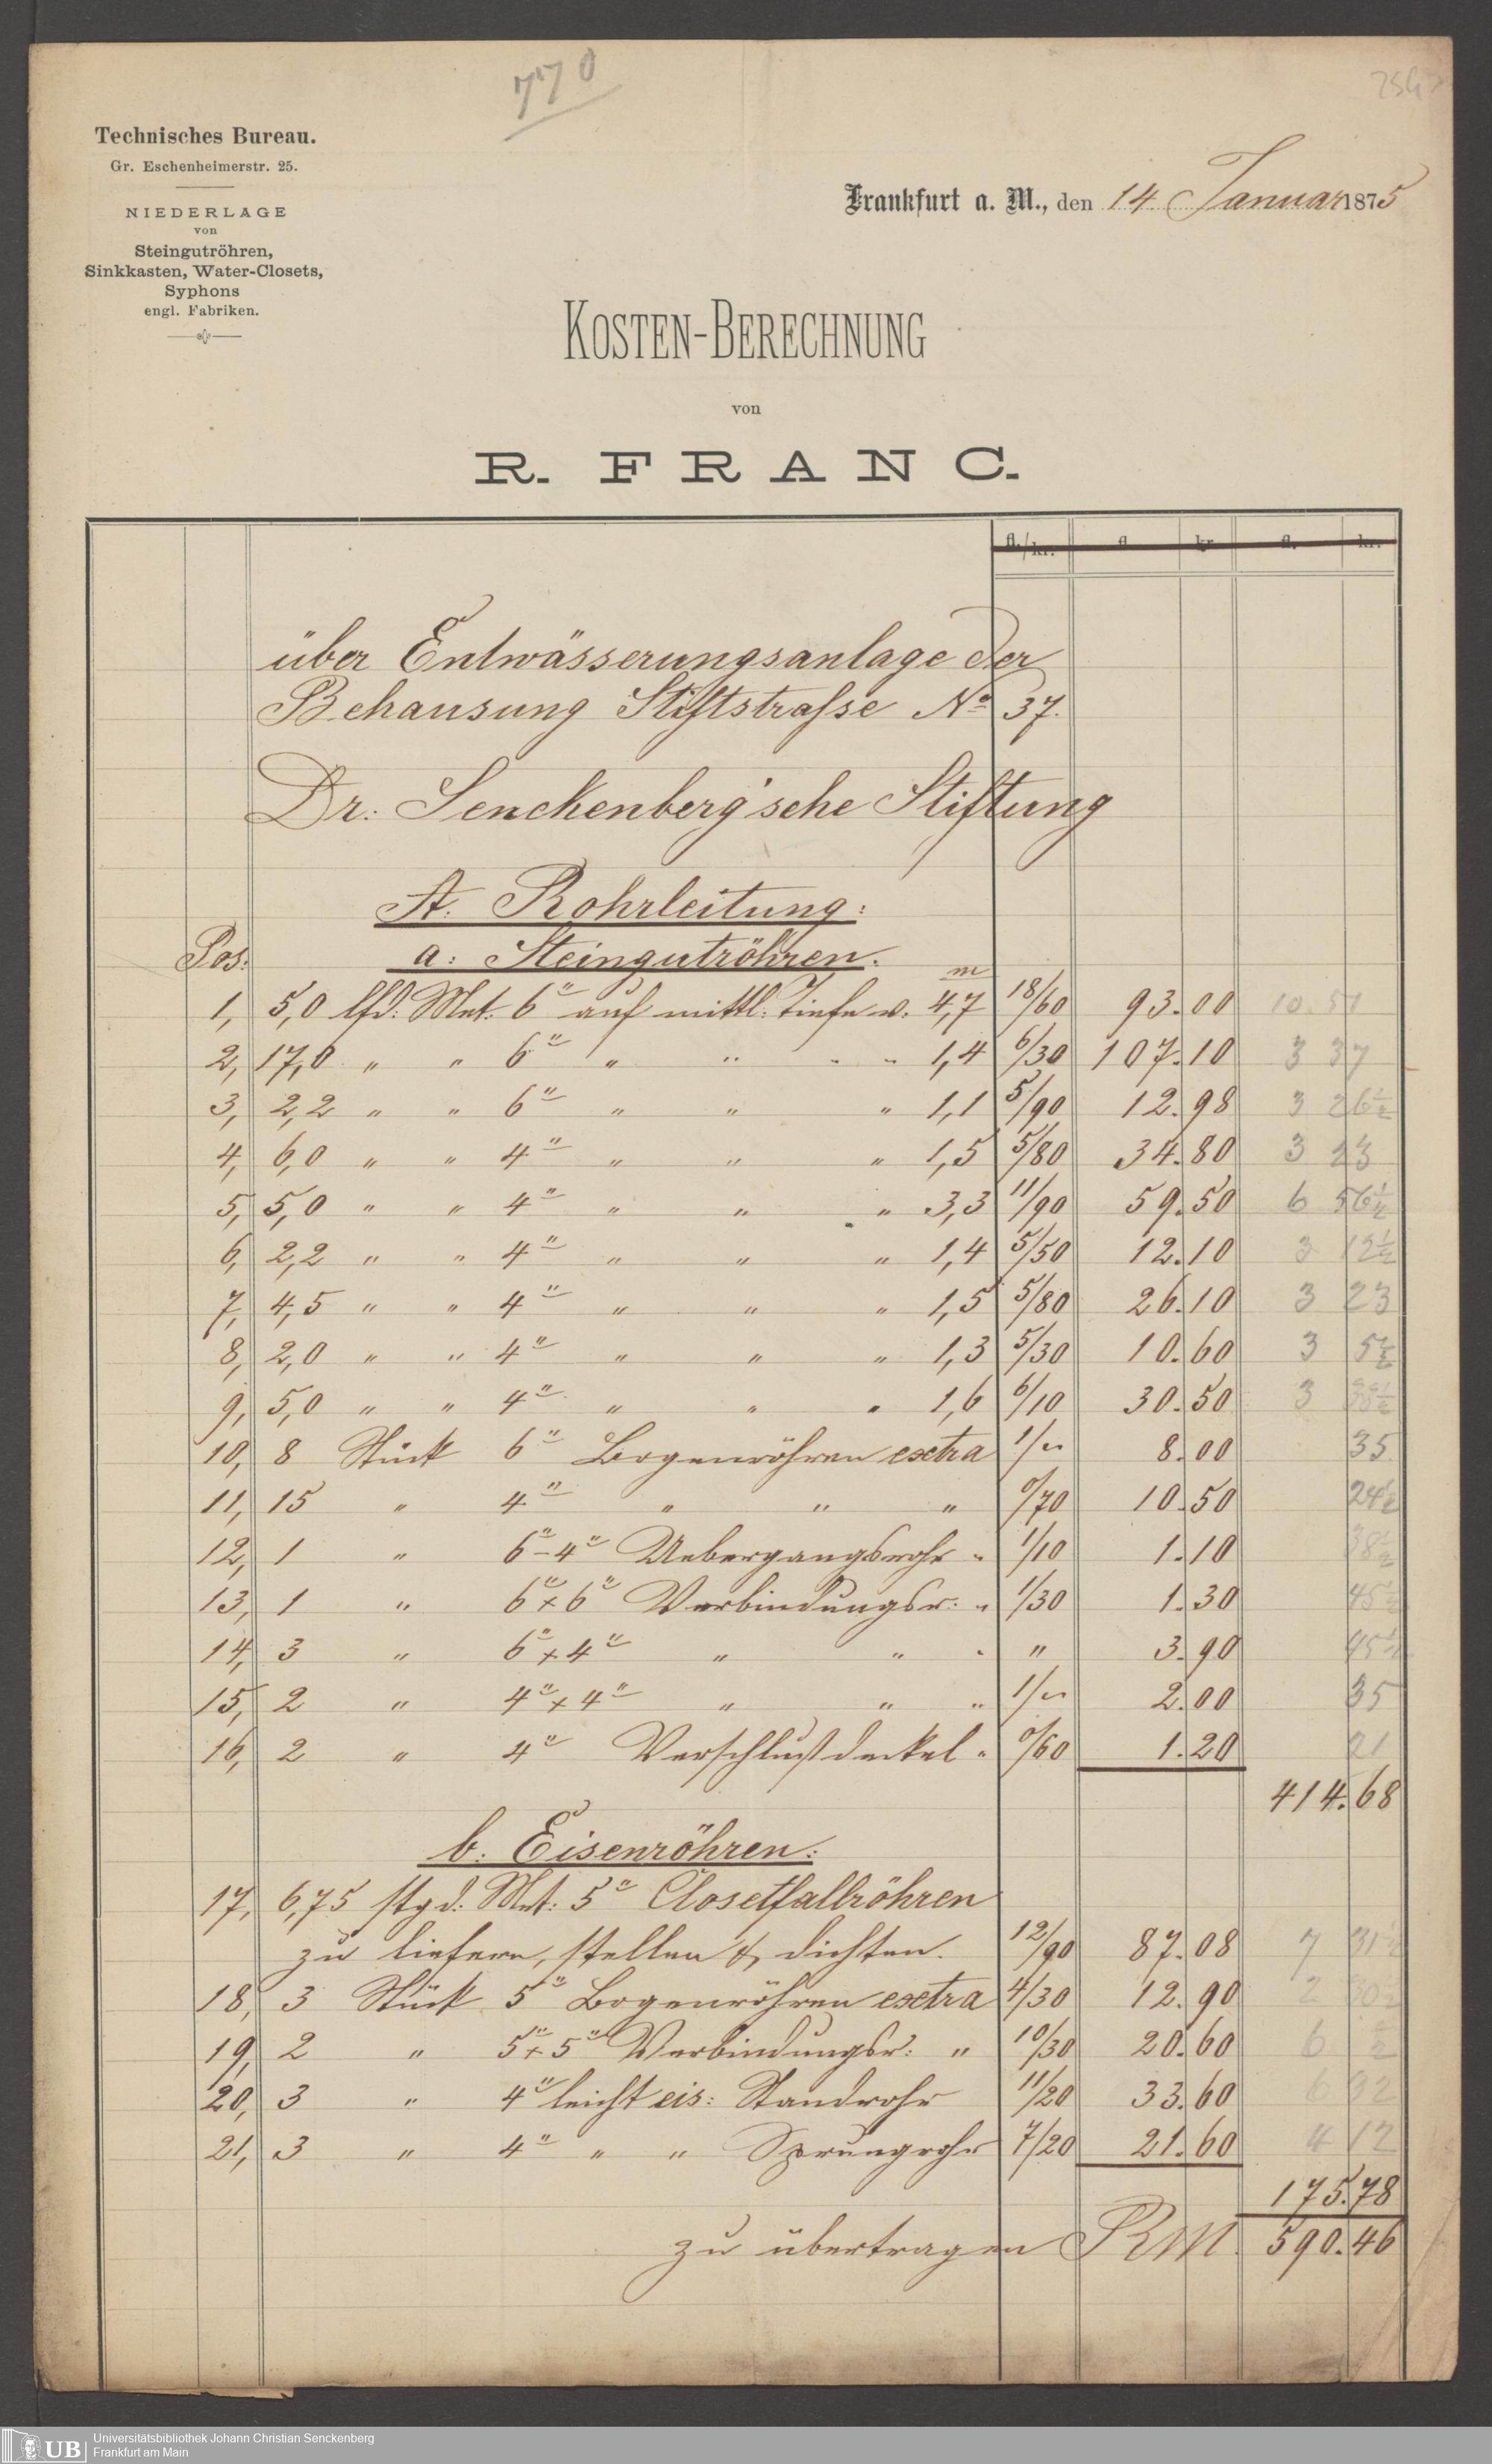 770
Technisches Bureau.
Gr. Eschenheimerstr. 25.
NIEDERLAGE
von
Steingutröhren,
Sinkkasten, Water-Closets,
Syphons
engl. Fabriken.
Frankfurt a. M., den 14 Januar 1875
KOSTEN-BERECHNUNG
von
R. FRANC.
fl./kr. fl. kr. fl. kr.
über Entwässerungsanlage der
Behausung Stiftstraſse No 37.
Dr: Senckenberg'sche Stiftung
A. Rohrleitung:
Pos: a: Steingutröhren.
m
1, 5,0 lfd: Met. 6" auf mittl: Tiefe v. 4,7 18/60 93.00 10 51
2, 17,0 " " 6" " " " " 1,4 6/30 107.10 3 37
3, 2,2 " " 6" " " " 1,1 5/90 12.98 3 26½
4, 6,0 " " 4" " " " 1,5 5/80 34.80 3 23
5, 5,0 " " 4" " " " 3,3 11/90 59.50 6 56½
6, 2,2 " " 4" " " " 1,4 5/50 12.10 3 12½
7, 4,5 " " 4" " " " 1,5 5/80 26.10 3 23
8, 2,0 " " 4" " " " 1,3 5/30 10.60 3 5½
9, 5,0 " " 4" " " " 1,6 6/10 30.50 3
10, 8 Stück 6" Bogenröhren extra 1/" 8.00 35
11, 15 " 4" " " " 0/70 10.50 24½
12, 1 " 6"-4" Uebergangsrohr " 1/10 1.10 38½
13, 1 " 6"x6" Verbindungsr: " 1/30 1.30 45½
14, 3 " 6"x4" " " " " 3.90 45½
15, 2 " 4"x4" " " " 1/" 2.00 35
16, 2 " 4" Verschlußdeckel " 0/60 1.20 21
414.68
b: Eisenröhren:
17, 6,75 stgd: Met: 5" Closetfallröhren
zu liefern, stellen & dichten. 12/90 87.08 7 31½
18, 3 Stück 5" Bogenröhren extra 4/30 12.90 2 30½
19, 2 " 5"x5" Verbindungsr: " 10/30 20.60 6 ½
20, 3 " 4" leicht eis: Standrohr 11/20 33.60 6 32
21, 3 " 4" " " Sprungrohr 7/20 21.60 4 12
175.78
zu übertragen RM 590.46
UB Universitätsbibliothek Johann Christian Senckenberg
Frankfurt am Main